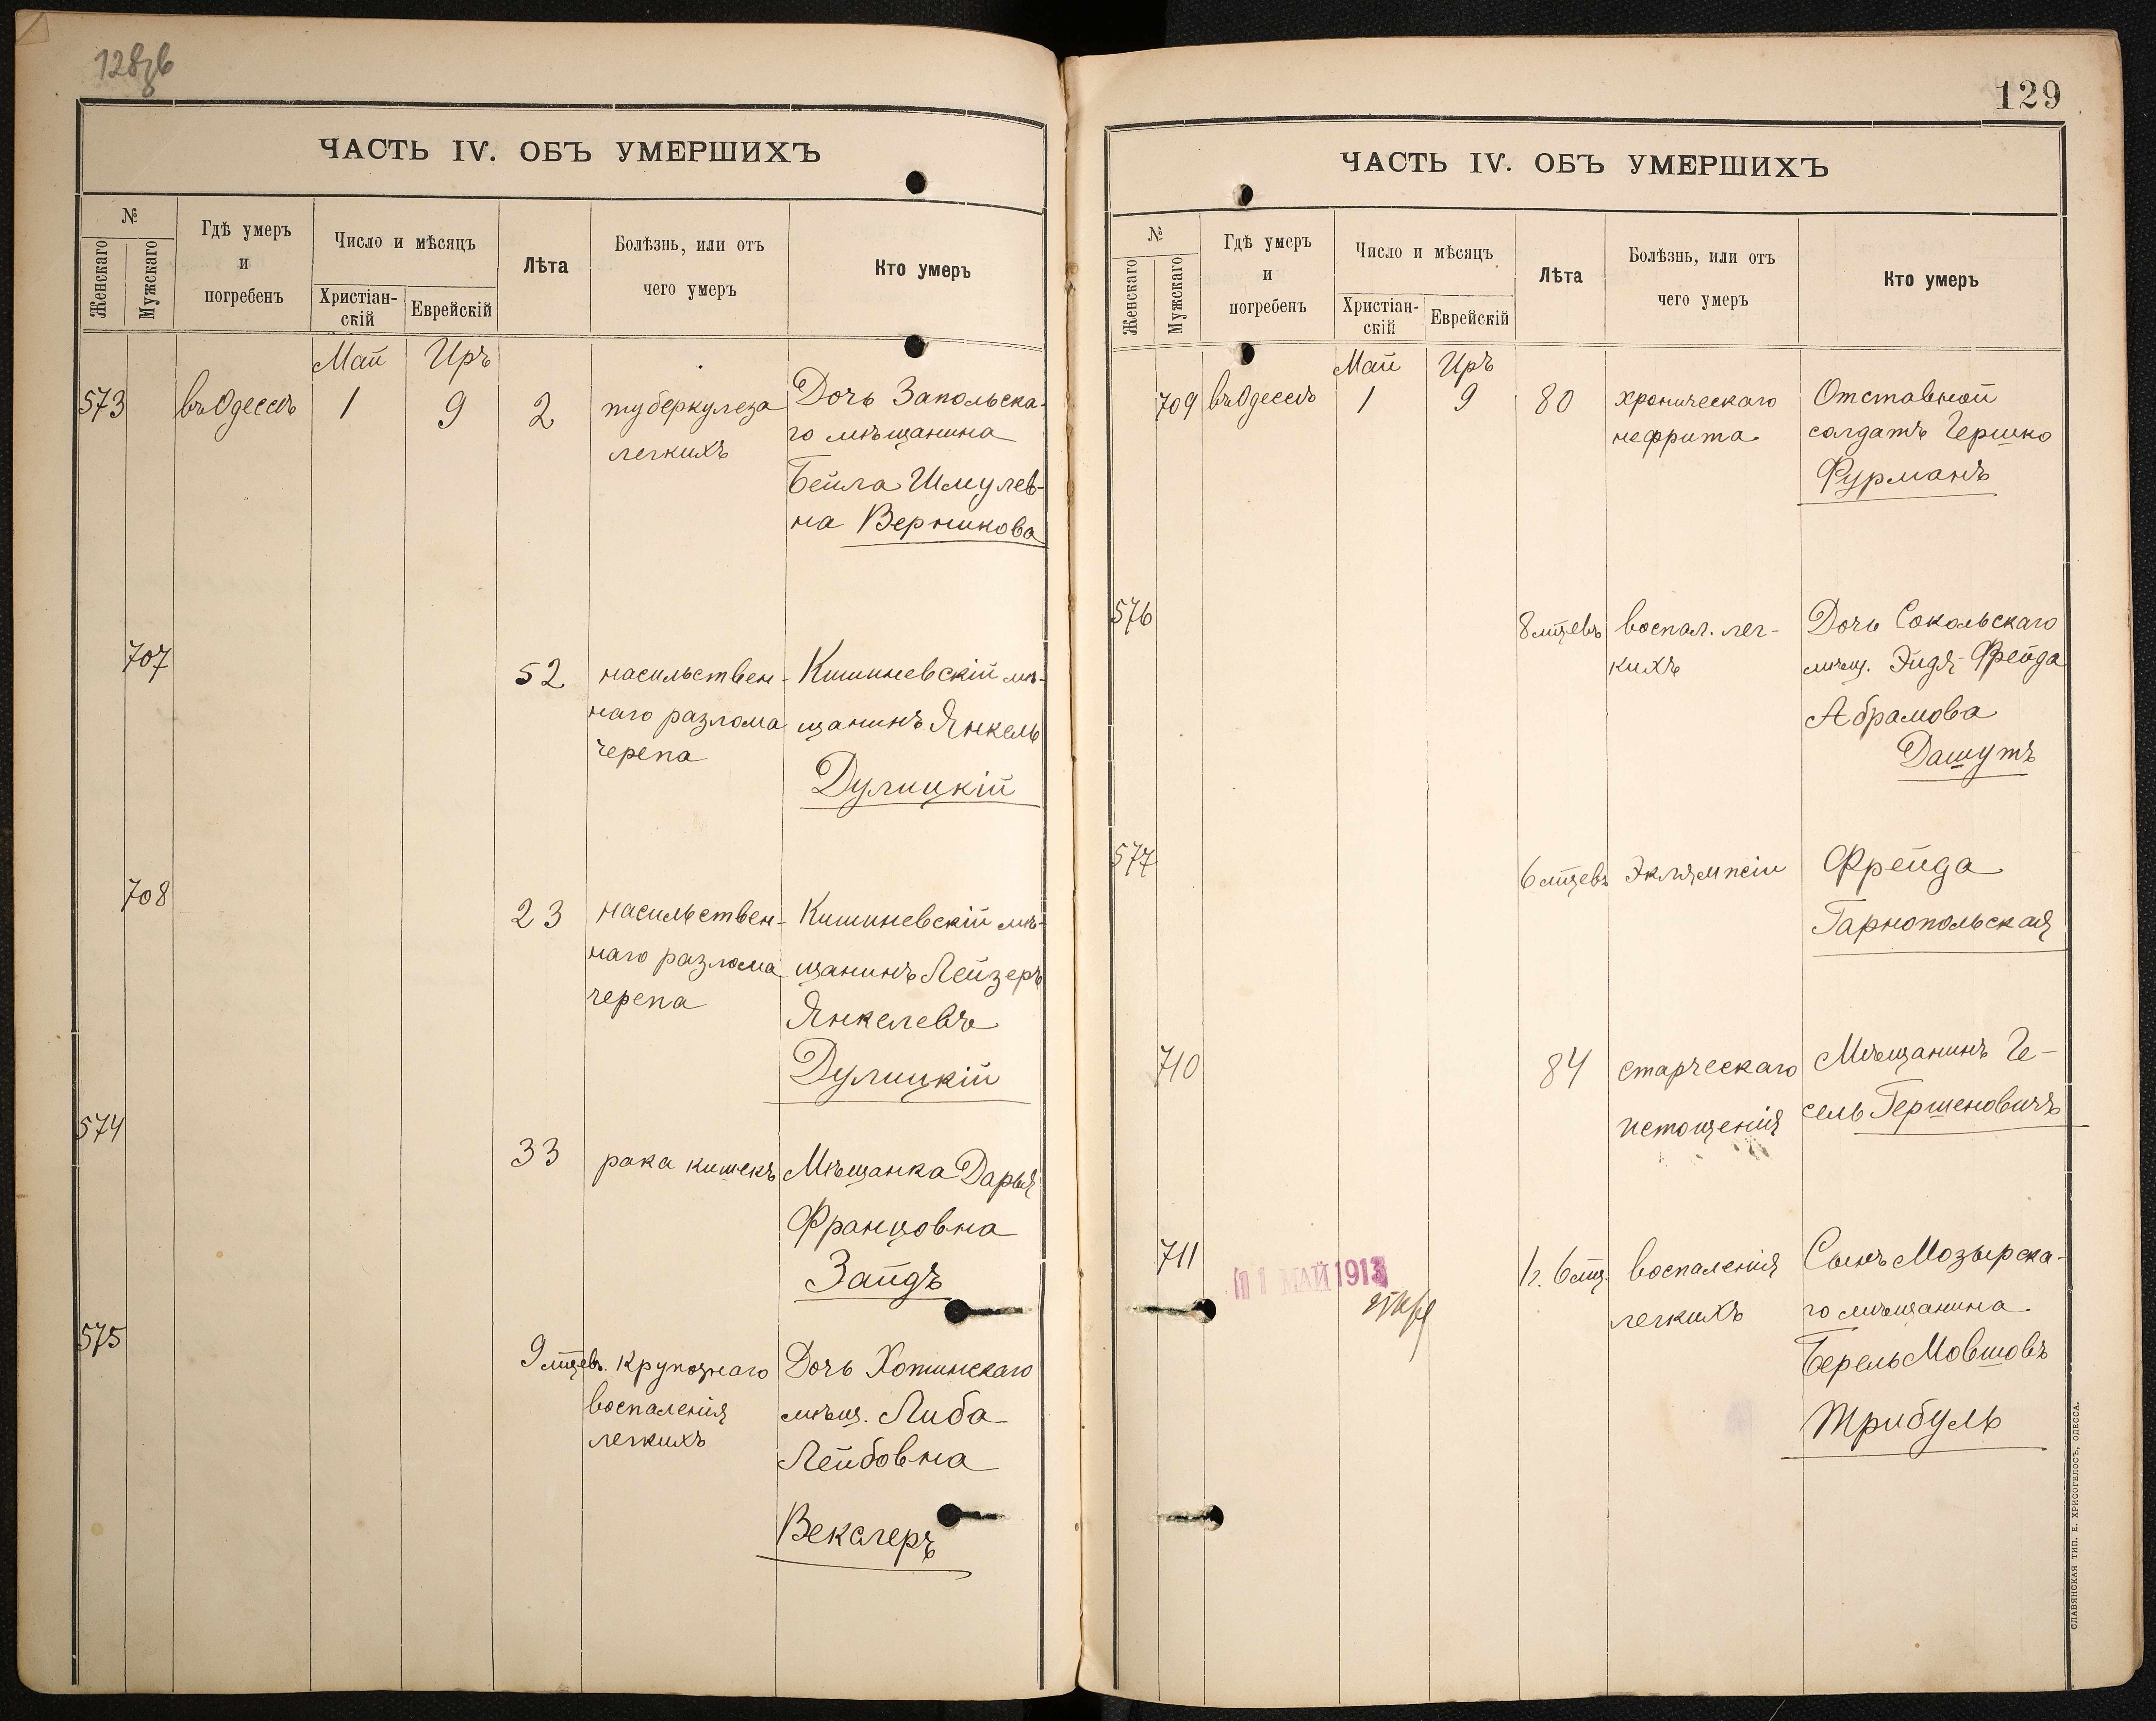 128об
ЧАСТЬ IV. ОБЪ УМЕРШИХЪ
№
Женскаго
Мужскаго
Гдѣ умеръ
и
погребенъ
Число и мѣсяцъ
Христіан-
скій
Еврейскій
Лѣта
Болѣзнь, или отъ
чего умеръ
Кто умеръ
Май Иръ
573 въ Одессѣ 1 9 2 туберкулеза Дочь Запольска-
легкихъ го мѣщанина
Бейла Шмулев-
на Верникова
707 52 насильствен- Кишиневскій мѣ-
наго разлома щанинъ Янкель
черепа
Дулицкій
708 23 насильствен- Кишиневскій мѣ-
наго разлома щанинъ Лейзеръ
черепа Янкелевъ
Дулицкій
574 33 рака кишекъ Мѣщанка Дарья
Францовна
Зайдъ
575 9 мцевъ. крупознаго Дочь Хотинскаго
воспаленія мѣщ. Либа
легкихъ Лейбовна
Векслеръ
129
ЧАСТЬ IV. ОБЪ УМЕРШИХЪ
№
Женскаго
Мужскаго
Гдѣ умеръ
и
погребенъ
Число и мѣсяцъ
Христіан-
скій
Еврейскій
Лѣта
Болѣзнь, или отъ
чего умеръ
Кто умеръ
Май Иръ
709 въ Одессѣ 1 9 80 хроническаго Отставной
нефрита солдатъ Гершко
Фурманъ
576 8 мцевъ воспал. лег- Дочь Сокольскаго
кихъ мѣщ. Эйдя-Фрейда
Абрамова
Дашутъ
577 6 мцевъ Эклямпсіи Фрейда
Тарнопольская
710 84 старческаго Мѣщанинъ Ге-
истощенія сель Гершеновичъ
711 1 г. 6 мц. воспаленія Сынъ Мозырска-
легкихъ го мѣщанина
Берель Мовшовъ
Трибуль
11 МАЙ 1913
СЛАВЯНСКАЯ ТИП. Е. ХРИСОГЕЛОСЪ, ОДЕССА.